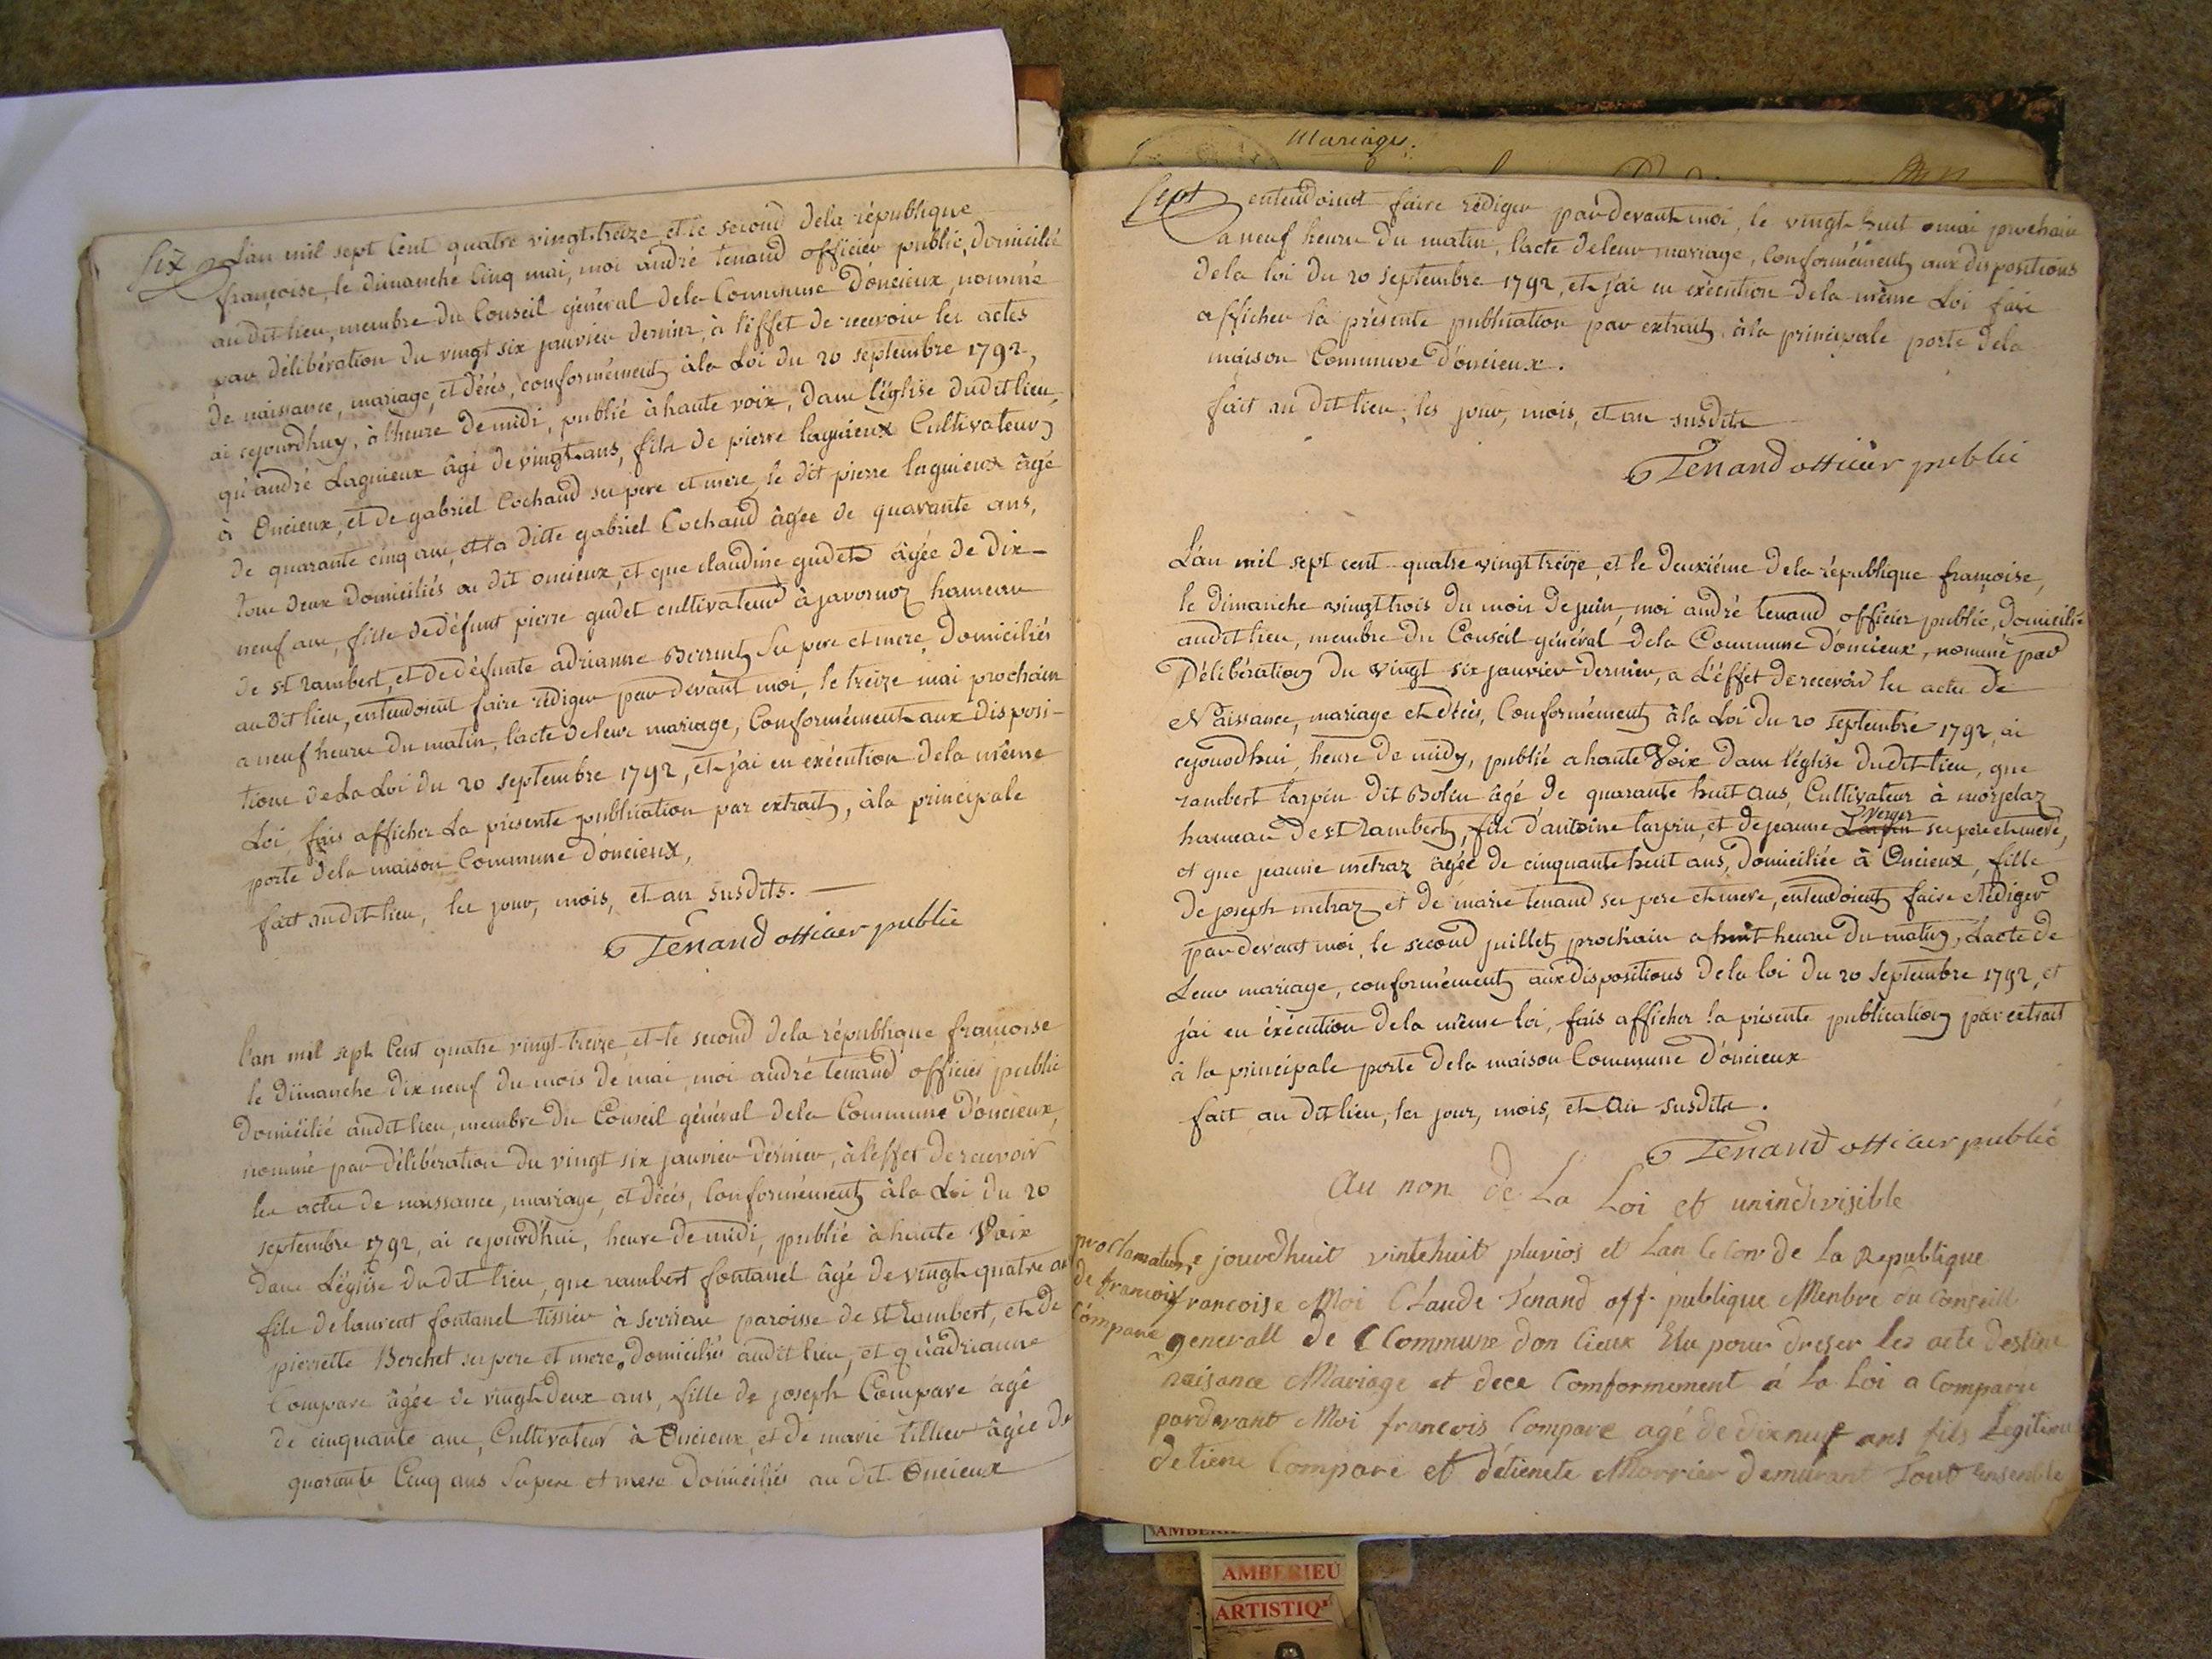 Six L'an mil sept Cent quatre vingt-treize et le second dela république
françoise, le dimanche Cinq mai, moi andré tenand officier public, domicilié
au dit lieu, membre du Conseil général dela Commune d'oncieux, nommé
par délibération du vingt six janvier dernier, à l'effet de recevoir les actes
de naissance, mariage, et décés, conformément à la Loi du 20 septembre 1792,
ai cejourdhuy, à l'heure de midi, publié à haute voix, dans l'église dudit lieu,
qu'andré Laguieux âgé de vingt ans, fils de pierre laguieux Cultivateur
à Oncieux, et de gabriel Cochand ses pere et mere, le dit pierre laguieux âgé
de quarante cinq ans, et la ditte gabriel Cochand âgée de quarante ans,
tous deux domiciliés au dit oncieux, et que claudine gudet âgée de dix-
neuf ans, fille de défunt pierre gudet cultivateur à javornoz hameau
de st rambert, et de défunte adrianne Berrut Ses pere et mere, domiciliés
au dit lieu, entendoient faire rédiger par devant moi, le treize mai prochain
a neuf heures du matin, l'acte de leur mariage, Conformément aux disposi-
tions de La Loi du 20 septembre 1792, et j'ai en exécution dela même
Loi, fais afficher La présente publication par extrait, à la principale
porte dela maison Commune d'oncieux,
fait au dit lieu, les jour, mois, et an susdits.
Tenand officier public
l'an mil sept Cent quatre vingt-treize, et le second dela république françoise
le dimanche dix neuf du mois de mai, moi andré tenand officier public
Domicilié au dit lieu, membre du Conseil général dela Commune d'oncieux,
nommé par délibération du vingt six janvier dernier, à l'effet de recevoir
les actes de naissance, mariage, et décés, Conformément à la Loi du 20
septembre 1792, ai cejourd'hui, heure de midi, publié à haute Voix
dans L'église du dit lieu, que rambert fontanel âgé de vingt quatre ans
fils de laurent fontanel tissier à serrieres paroisse de st Rambert, et de
pierrette Berchet ses pere et mere domiciliés audit lieu, et qu'adrianne
Compare âgée de vingt-Deux ans, fille de joseph Compare âgé
de cinquante ans, Cultivateur à Oncieux, et de marie tillier âgée de
quarante Cinq ans Ses pere et mere Domiciliés au dit Oncieux
Mariages.
Sept entendoient faire rédiger par devant moi, le vingt-huit mai prochain
a neuf heures du matin, l'acte de leur mariage, Conformément aux dispositions
dela loi du 20 septembre 1792, et j'ai en exécution dela même Loi fais
afficher la présente publication par extrait, à la principale porte dela
maison Commune d'oncieux.
fait au dit lieu, les jour, mois, et an susdits
Tenand officier public
L'an mil sept cent quatre vingt treize, et le deuxiéme dela république françoise,
le dimanche vingt trois du mois de juin, moi andré tenand officier public, domicilié
audit lieu, membre du Conseil général dela Commune d'oncieux, nommé par
Délibération du vingt six janvier dernier, a L'éffet de recevoir les actes de
Naissance, mariage et décés, Conformément à la Loi du 20 septembre 1792, ai
cejourdhui, heure de midy, publié a haute Voix dans l'église dudit lieu, que
rambert tarpin dit Bolin âgé de quarante huit ans, Cultivateur à morjelaz
hameau de st Rambert, fils d'antoine tarpin, et de jeanne Larpin Verger ses pere et mere,
et que jeanne metraz âgée de cinquante huit ans, domiciliée à Oncieux, fille
de joseph metraz et de marie tenand ses pere et mere, entendoient faire Rédiger
par devant moi, le second juillet prochain a huit heures du matin, L'acte de
Leur mariage, conformément aux dispositions dela loi du 20 septembre 1792, et
j'ai en éxécution dela même loi, fais afficher la présente publication par extrait
à la principale porte dela maison Commune d'oncieux
fait au dit lieu, les jour, mois, et an susdits.
Tenand officier public
Au non de La Loi et unindivisible
proclamation
de francois
Compare
Ce jourdhuit vintehuit pluvios et Lan Secon de La Republique
francoise Moi Claude Tenand off. publique Menbre du Conseill
generall de C Commune don Cieux Elu pour dreser les acte destine
naisance Mariage et dece Comformement á La Loi a Comparu
pardevant Moi francois Compare agé de dixneuf ans fils Legitime
detiene Compare et détienete Morrier demurant Tout ensenble
AMBERIEU
ARTISTIQ